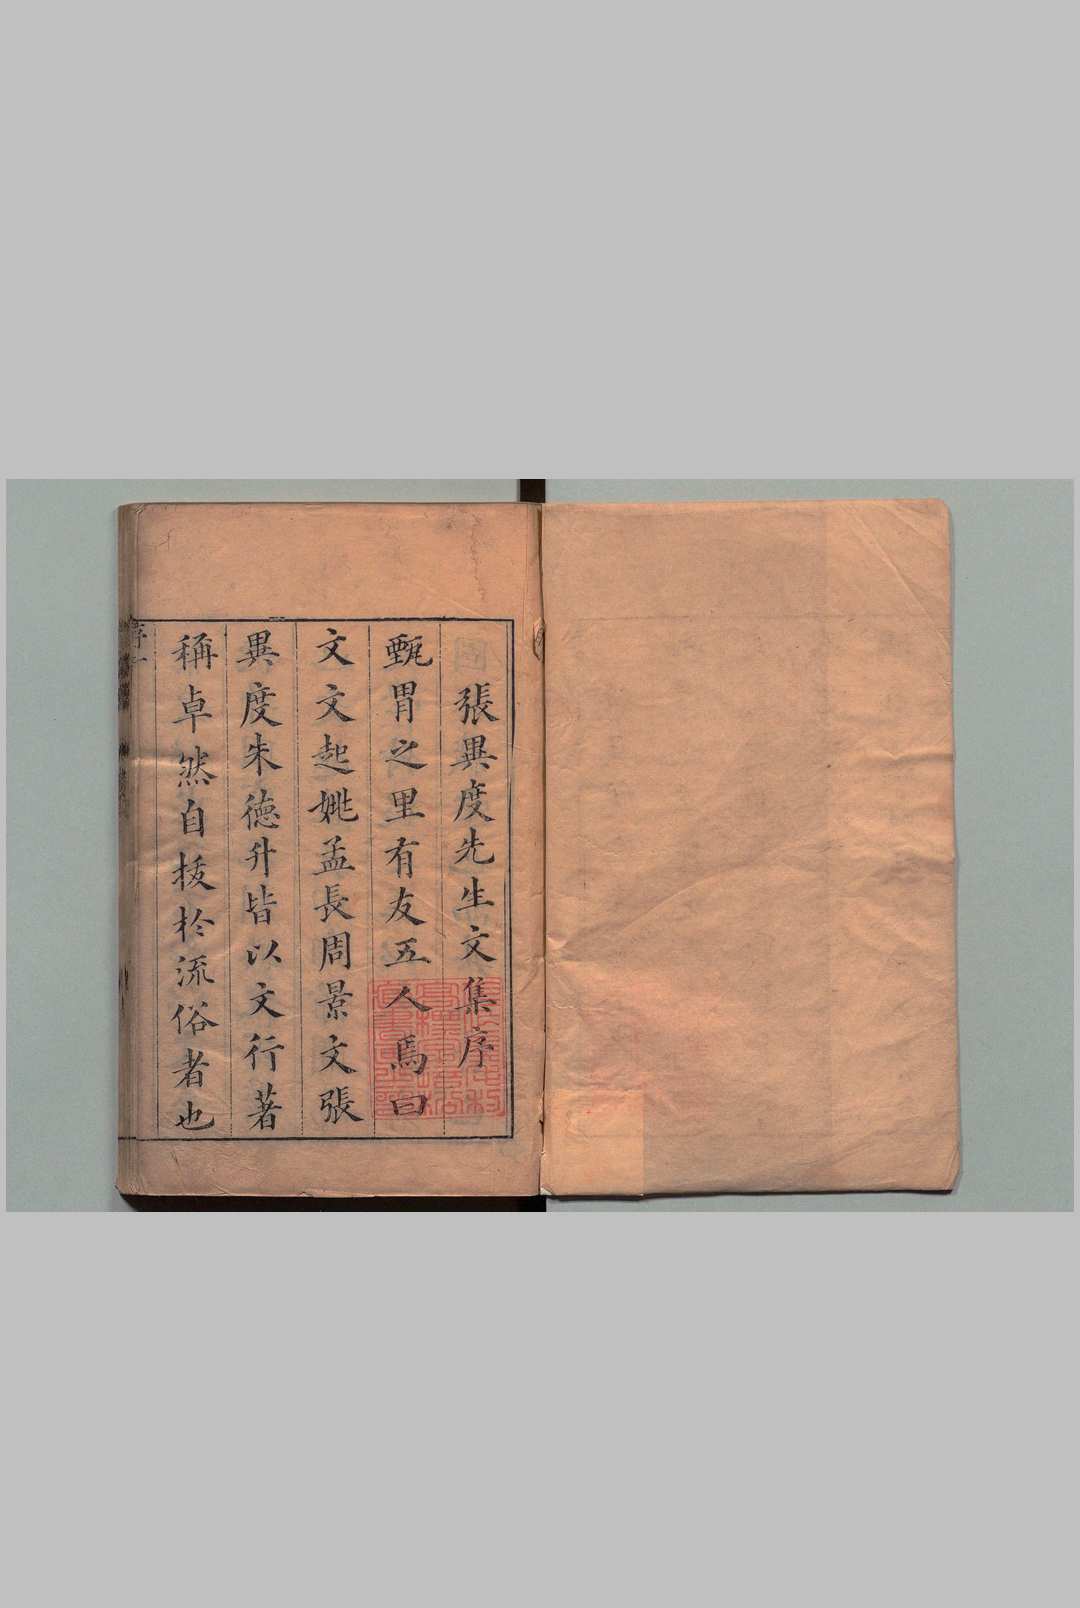 張異度先生文集序
甄胄之里有友五人焉曰
文文起姚孟長周景文張
異度朱德升皆以文行著
稱卓然自拔於流俗者也
序一